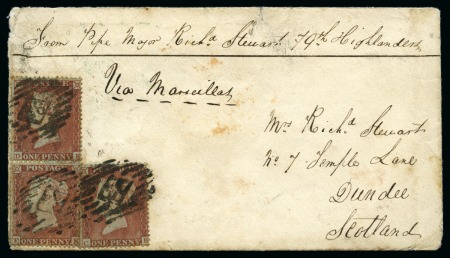 From Pipe Major Richd Stewart 79th Highlanders
Via Marseilles
Mrs Richd Stewart
No 7 Temple Lane
Dundee
Scotland
ONE PENNY
POSTAGE
ONE PENNY
ONE PENNY